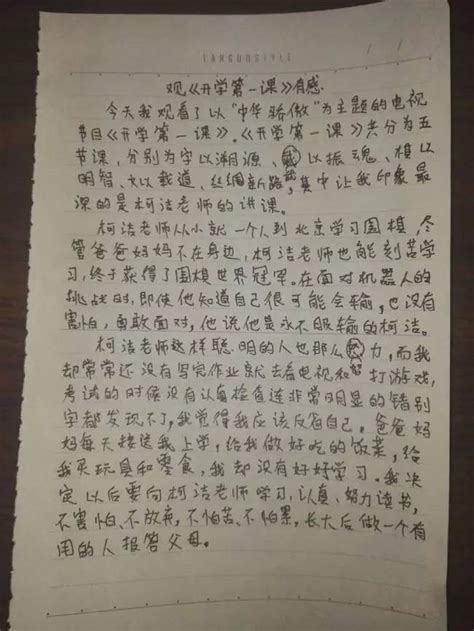 观《开学第一课》有感.
今天我观看了以"中华骄傲"为主题的电视
节目《开学第一课》.《开学第一课》共分为五
节课，分别为字以溯源、武以振魂、棋以
明智、文以载道、丝绸新路，其中让我印象最
深的是柯洁老师的讲课。
柯洁老师从小就一个人到北京学习围棋，尽
管爸爸妈妈不在身边，柯洁老师也能刻苦学
习，终于获得了围棋世界冠军。在面对机器人的
挑战时，即使他知道自己很可能会输，也没有
害怕，勇敢面对，他说他是永不服输的柯洁。
柯洁老师这样聪明的人也那么努力，而我
却常常还没有写完作业就去看电视和打游戏，
考试的时候没有认真检查连非常明显的错别
字都发现不了，我觉得我应该反省自己。爸爸妈
妈每天接送我上学，给我做好吃的饭菜，给
我买玩具和零食，我却没有好好学习。我决
定以后要向柯洁老师学习，认真、努力读书，
不害怕、不放弃，不怕苦、不怕累，长大后做一个有
用的人报答父母。